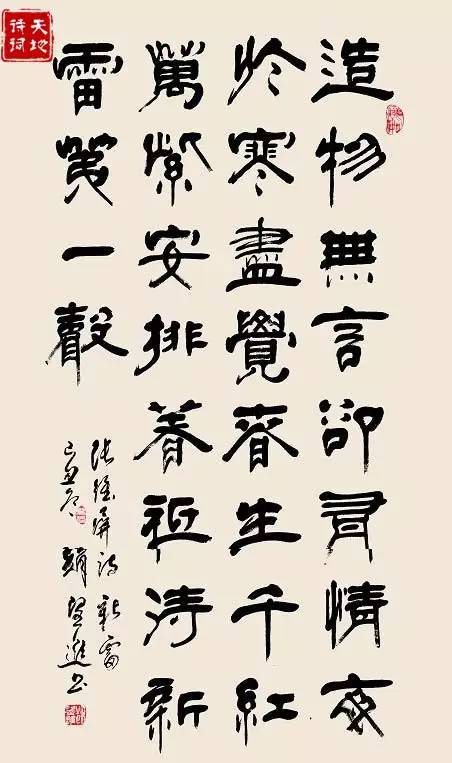 天地
诗词
造物無言卻有情每
於寒盡覺春生千紅
萬紫安排着祗待新
雷第一聲
張維屏詩 新雷
己丑冬 趙望進書